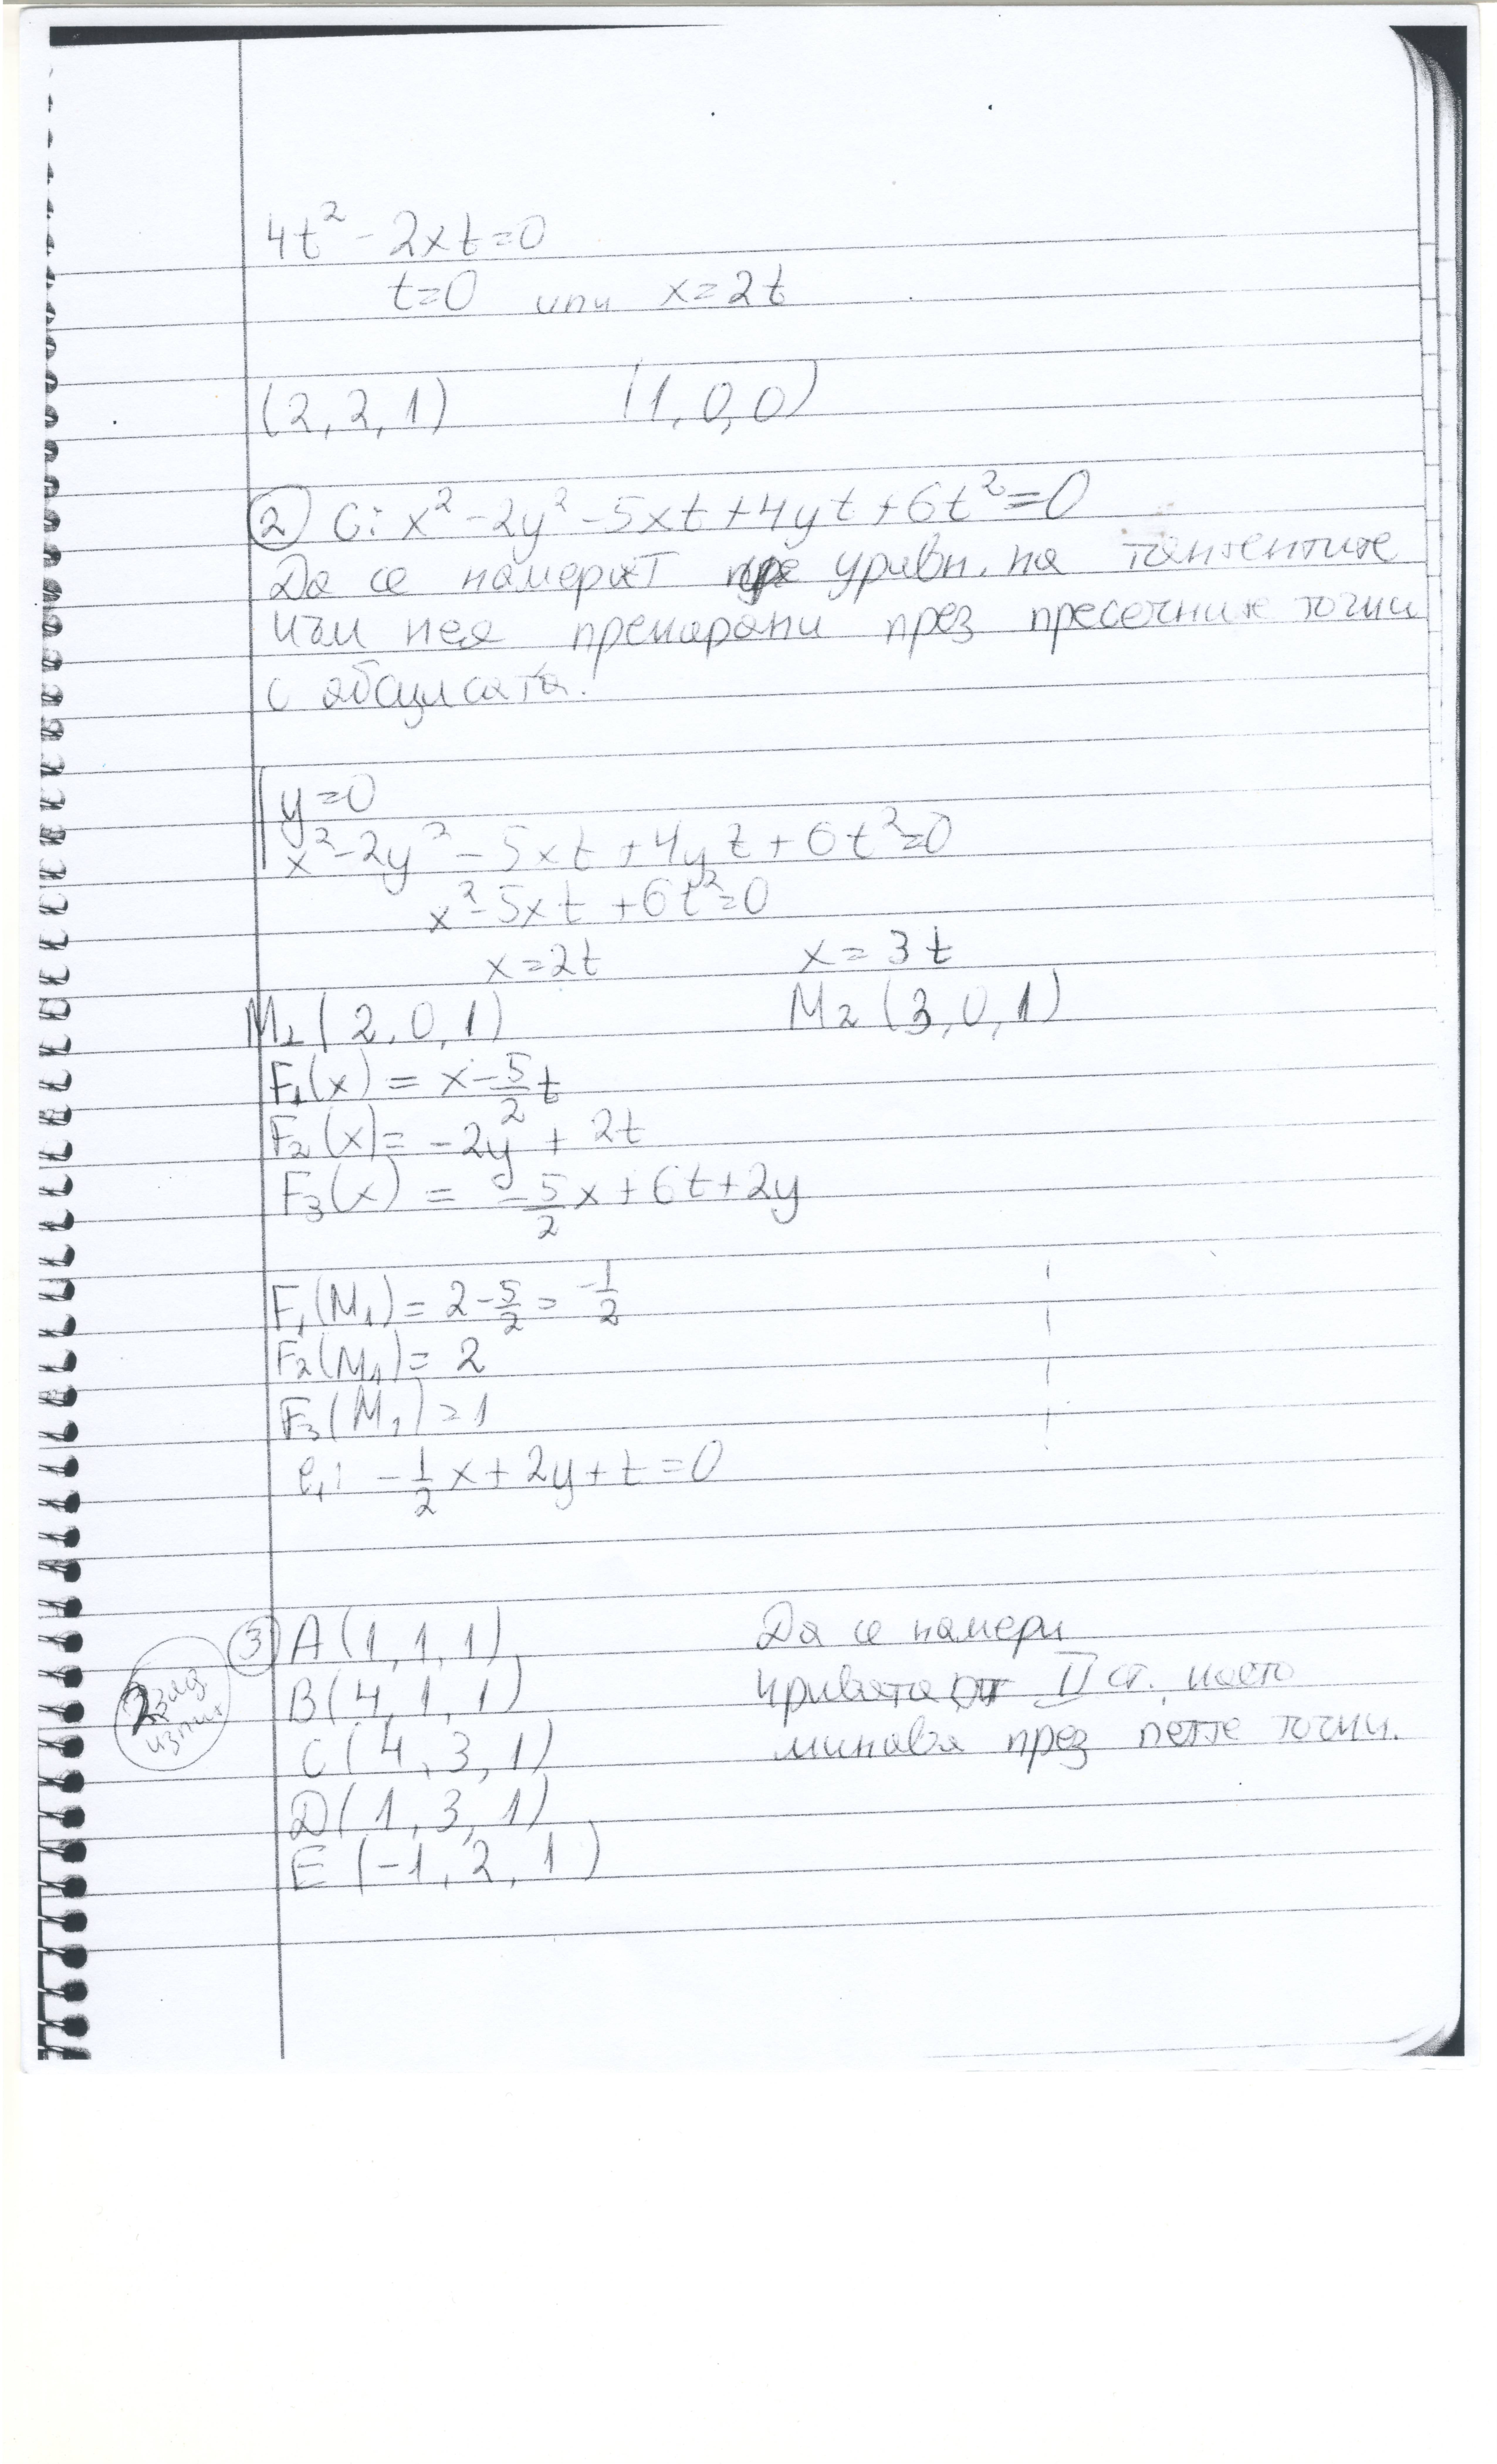 4t² - 2xt = 0
t = 0 или x = 2t
(2, 2, 1) (1, 0, 0)
② C: x² - 2y² - 5xt + 4yt + 6t² = 0
Да се намерят уравн. на тангентите
към нея прекарани през пресечните точки
с абсцисата.
y = 0
x² - 2y² - 5xt + 4yt + 6t² = 0
x² - 5xt + 6t² = 0
x = 2t x = 3t
M₁ (2, 0, 1) M₂ (3, 0, 1)
F₁(x) = x - 5/2 t
F₂(x) = -2y + 2t
F₃(x) = -5/2 x + 6t + 2y
F₁(M₁) = 2 - 5/2 = -1/2
F₂(M₁) = 2
F₃(M₁) = 1
l₁: -1/2 x + 2y + t = 0
③ A (1, 1, 1) Да се намери
B (4, 1, 1) кривата от II ст. която
C (4, 3, 1) минава през петте точки.
D (1, 3, 1)
E (-1, 2, 1)